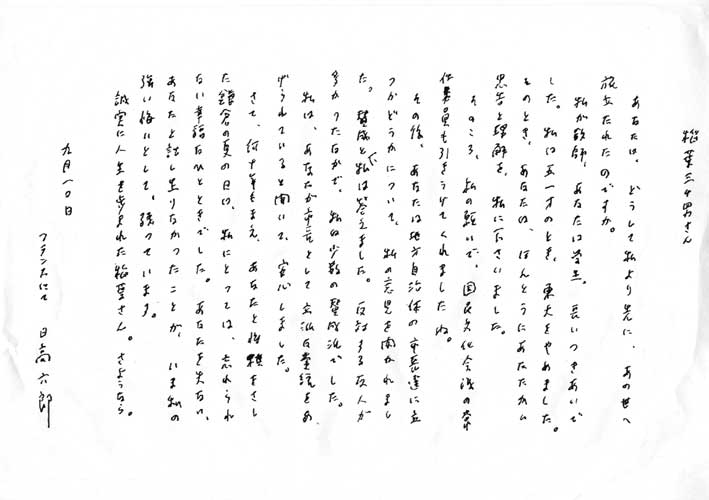 稲葉三千男さん
あなたは、どうして私より先に、あの世へ
旅立たれたのですか。
私が教師、あなたは学生。長いつきあいで
した。私は五一才のとき、東大をやめました。
そのとき、あなたは、ほんとうにあたたかい
忠告と理解を、私に下さいました。
そのころ、私の願いで、国民文化会議の常
任委員も引きうけてくれましたね。
その後、あなたは地方自治体の市長選に立
つかどうかについて、私の意見を聞かれまし
た。賛成と、私は答えました。反対する友人が
多かったなかで、私は少数の賛成派でした。
私は、あなたが市長として立派な業績をあ
げられていると聞いて、安心しました。
さて、何十年もまえ、あなたと将棋をさし
た鎌倉の夏の日は、私にとっては、忘れられ
ない幸福なひとときでした。あなたを失ない、
あなたと話し足りなかったことが、いま私の
強い悔いとして、残っています。
誠実に人生を歩まれた稲葉さん。さようなら。
九月一〇日
フランスにて 日高六郎